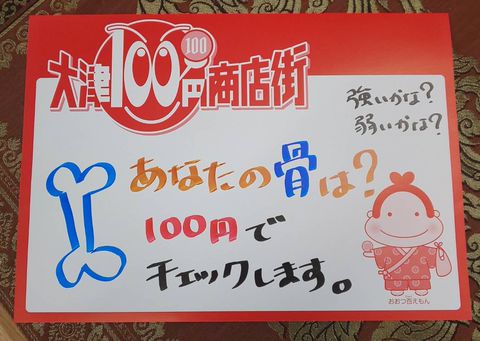 大津100円商店街
100
強いかな?
弱いかな?
あなたの骨は?
100円で
チェックします。
おおつ百えもん